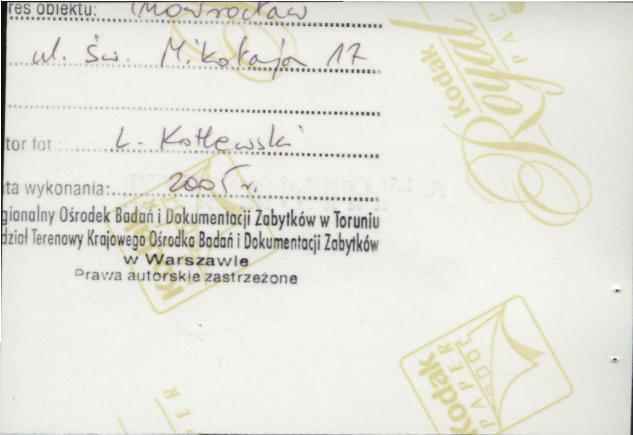 res obiektu: Inowrocław
ul. Św. Mikołaja 17
tor fot.: L. Kotlewski
ta wykonania: 2005 r.
gionalny Ośrodek Badań i Dokumentacji Zabytków w Toruniu
dział Terenowy Krajowego Ośrodka Badań i Dokumentacji Zabytków
w Warszawie
Prawa autorskie zastrzeżone
Kodak
Royal
PAPER
Kodak
PAPER
Kodak